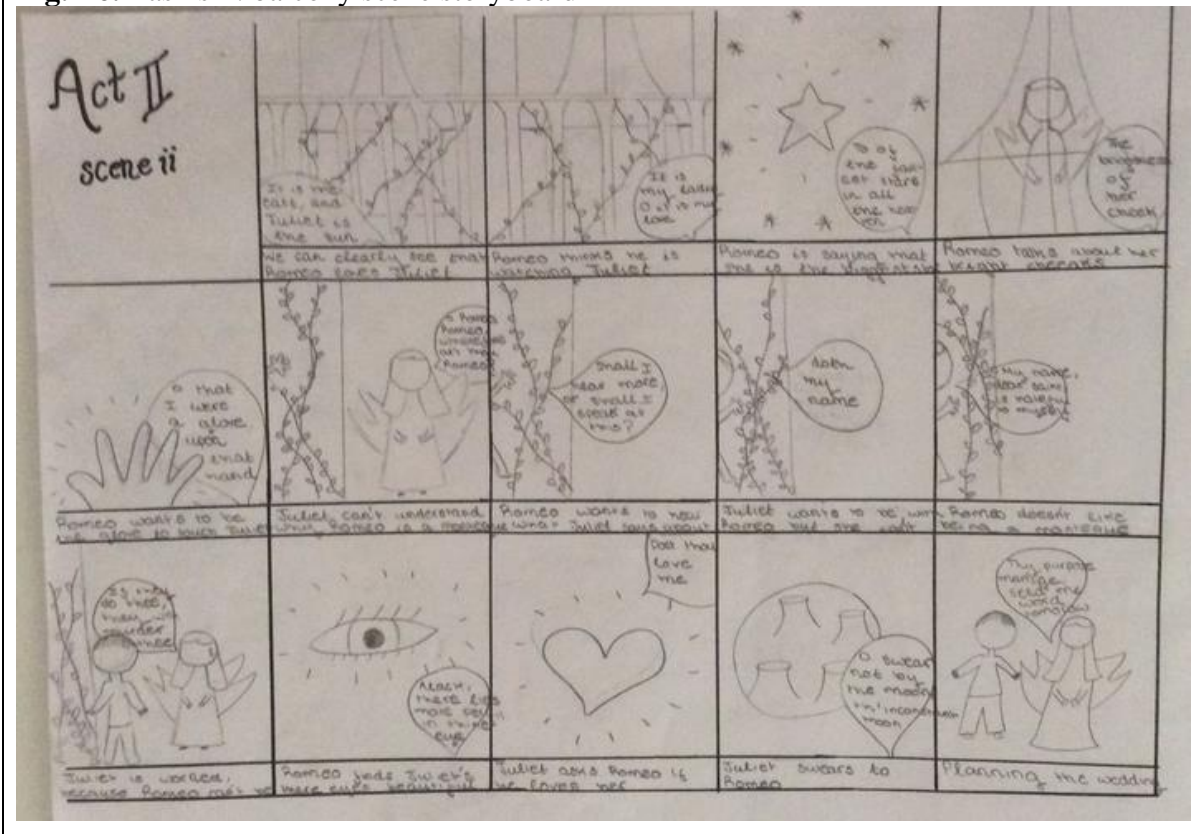 Act II
scene ii
It is the
east, and
Juliet is
the sun
We can clearly see that
Romeo loves Juliet
It is
my lady
O it is my
love
Romeo thinks he is
watching Juliet
of
the
stars
in all
the
Romeo is saying that
she is the biggest
The
brightness
of
her
cheek
Romeo talks about her
bright cheeks
O that
I were
a glove
upon
that
hand
Romeo wants to be
glove to touch Juliet
O Romeo
Romeo,
art
Romeo
Juliet can't understand
why Romeo is a
Shall I
hear more,
or shall I
speak at
this?
Romeo wants to
what Juliet says about
my
name
Juliet wants to be with
Romeo but she can't
My name,
dear
is
to myself
Romeo doesn't like
being a
If they
do thee,
they
murder
thee
Juliet is
because Romeo
Alack,
there lies
more
in thine
eye
Romeo Juliet's
eyes beautiful
thou
love
me
Juliet asks Romeo if
he loves her
O swear
not by
the moon
moon
Juliet swears to
Romeo
Thy purpose
send me
word
Planning the wedding